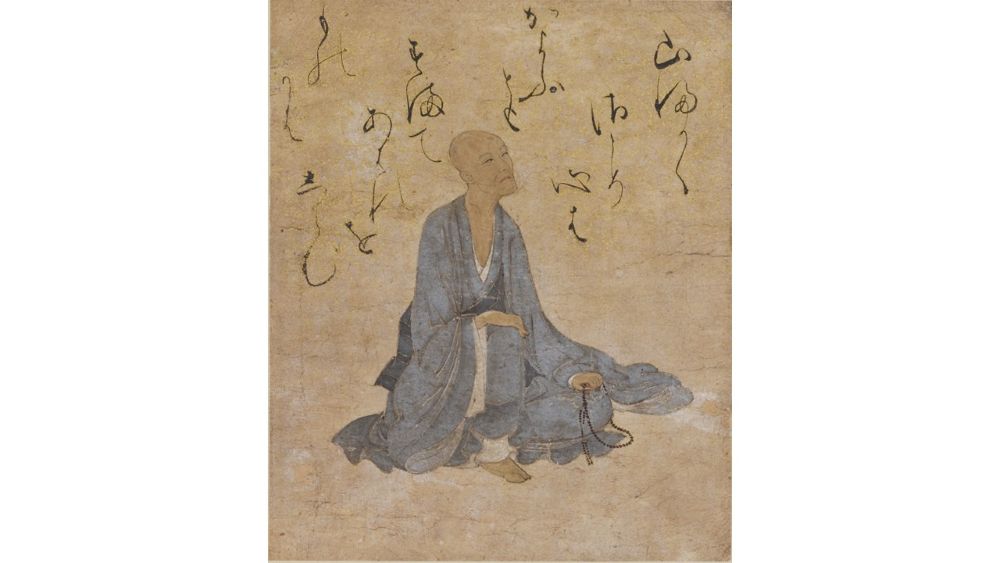 山ふかく
さこそ
心は
かよふ
とも
すまて
あはれを
しらむ
もの
かは